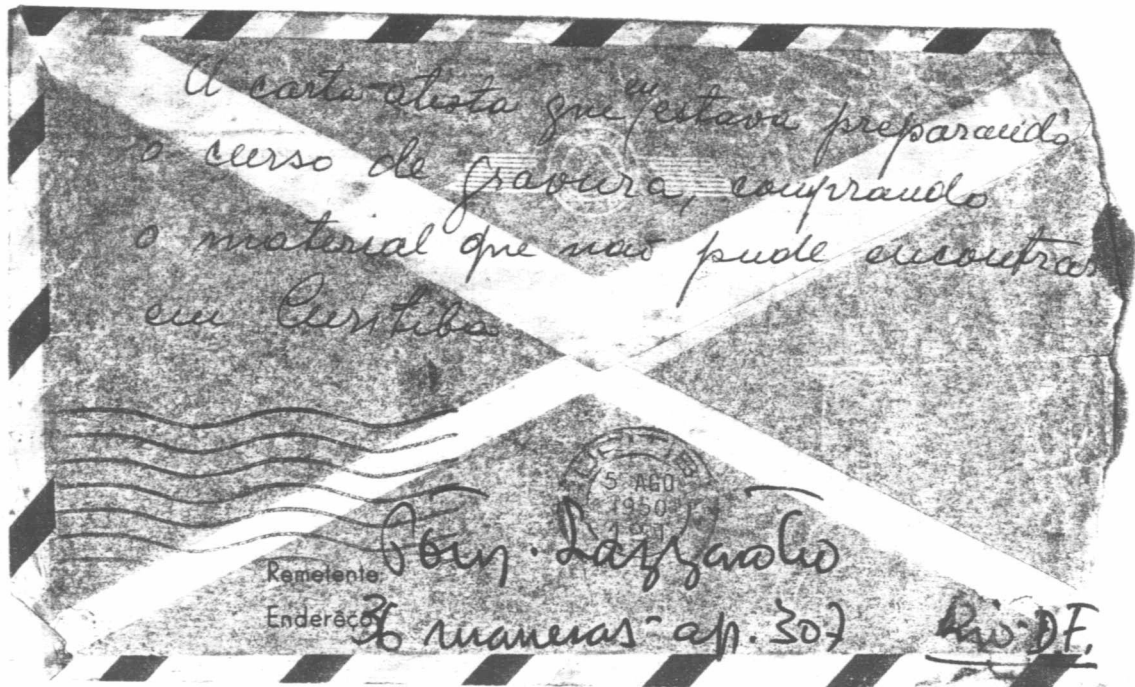 A carta atesta que eu estava preparando
o curso de gravura, comprando
o material que não pude encontrar
em Curitiba
5 AGO
1950
Remetente Poty Lazzarotto
Enderêço 36 ap. 307 Rio D.F.